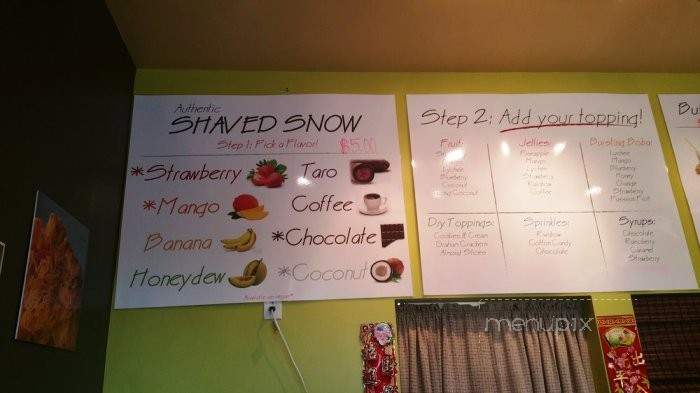 Authentic
SHAVED SNOW
Step 1: Pick a Flavor! $5.00
*Strawberry
Taro
*Mango
Coffee
Banana
*Chocolate
Honeydew
*Coconut
Step 2: Add your topping!
Fruit:
Lychee
Blueberry
Coconut
Jellies:
Pineapple
Mango
Lychee
Strawberry
Rainbow
Coffee
Bursting Boba:
Lychee
Mango
Blueberry
Honey
Orange
Strawberry
Passion Fruit
Dry Toppings:
Cookies & Cream
Graham Crackers
Almond Slices
Sprinkles:
Rainbow
Cotton Candy
Chocolate
Syrups:
Chocolate
Raspberry
Caramel
Strawberry
menupix